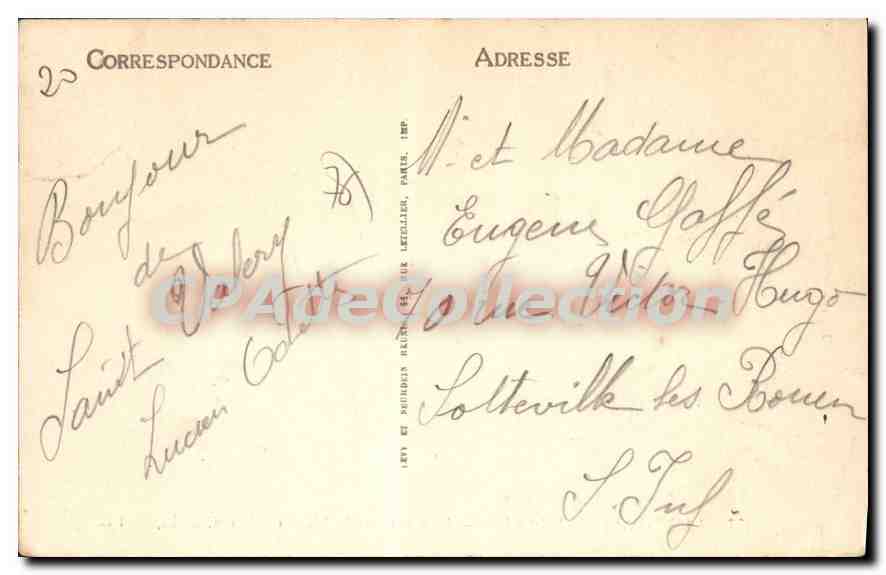 CORRESPONDANCE
20
Bonjour
de
Saint Valery
Lucien Odette
LEVY ET NEURDEIN REUNIS, 44, RUE LETELLIER, PARIS, IMP.
ADRESSE
M. et Madame
Eugène Gaffé
70 rue Victor Hugo
Sotteville les Rouen
S. Inf.
CPAdeCollection